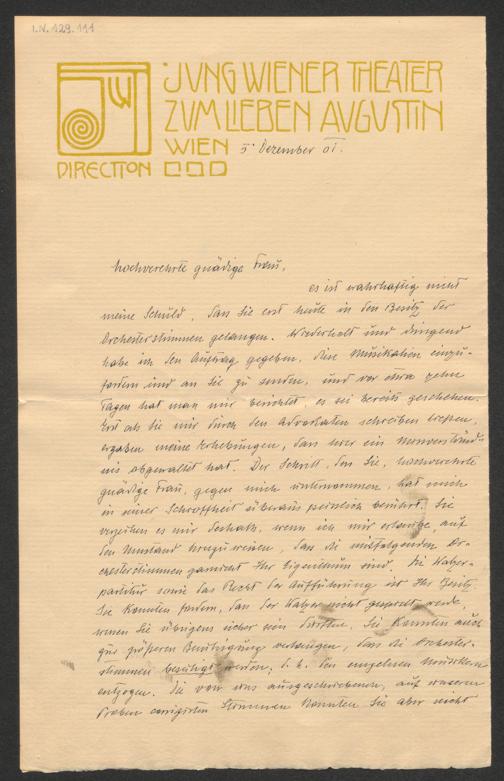 I.N. 129.111
JUNG WIENER THEATER
ZUM LIEBEN AUGUSTIN
WIEN 5. Dezember 01.
DIRECTION
hochverehrte gnädige Frau,
es ist wahrhaftig nicht
meine Schuld, dass Sie erst heute in den Besitz der
Orchesterstimmen gelangen. Wiederholt und dringend
habe ich den Auftrag gegeben, Ihre Musikalien einzu-
fordern und an Sie zu senden, und vor etwa zehn
Tagen hat man mir berichtet, es sei bereits geschehen.
Erst als Sie mir durch den Advocaten schreiben liessen,
ergaben meine Erhebungen, dass hier ein Missverständ-
nis obgewaltet hat. Der Schritt, den Sie, hochverehrte
gnädige Frau, gegen mich unternommen, hat mich
in seiner Schroffheit überaus peinlich berührt. Sie
verzeihen es mir deshalb, wenn ich mir erlaube, auf
den Umstand hinzuweisen, dass die mitfolgenden Or-
chesterstimmen garnicht Ihr Eigenthum sind. Die Walzer-
partitur sowie das Recht der Aufführung ist Ihr Besitz.
Sie konnten fordern, dass der Walzer nicht gespielt werde,
wessen Sie übrigens sicher sein durften. Sie konnten auch
zur größeren Beruhigung verlangen, dass die Orchester-
stimmen beseitigt werden, d.h. den einzelnen Musikern
entzogen. Die von uns ausgeschriebenen, auf unseren
Proben corrigirten Stimmen konnten Sie aber nicht